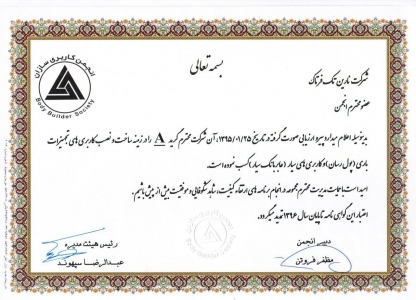 بسمه تعالی
انجمن کاربری سازان
Body Builder Society
شرکت نارین تک فرتاک
عضو محترم انجمن
بدینوسیله اعلام میدارد پیرو ارزیابی صورت گرفته در تاریخ ۱۳۹۵/۰۱/۲۵، آن شرکت محترم گرید A را در زمینه ساخت و نصب کاربری های تجهیزات
باری (پول رسان) و کاربری های سیار (عابر بانک سیار) کسب نموده است.
امید است با حمایت مدیریت محترم مجموعه در انجام برنامه های ارتقاء کیفیت، شاهد شکوفایی و موفقیت بیش از پیش باشیم.
اعتبار این گواهی نامه تا پایان سال ۱۳۹۶ تمدید میگردد.
دبیر انجمن
مظفر فروتن
رئیس هیئت مدیره
عبدالرضا سپهوند